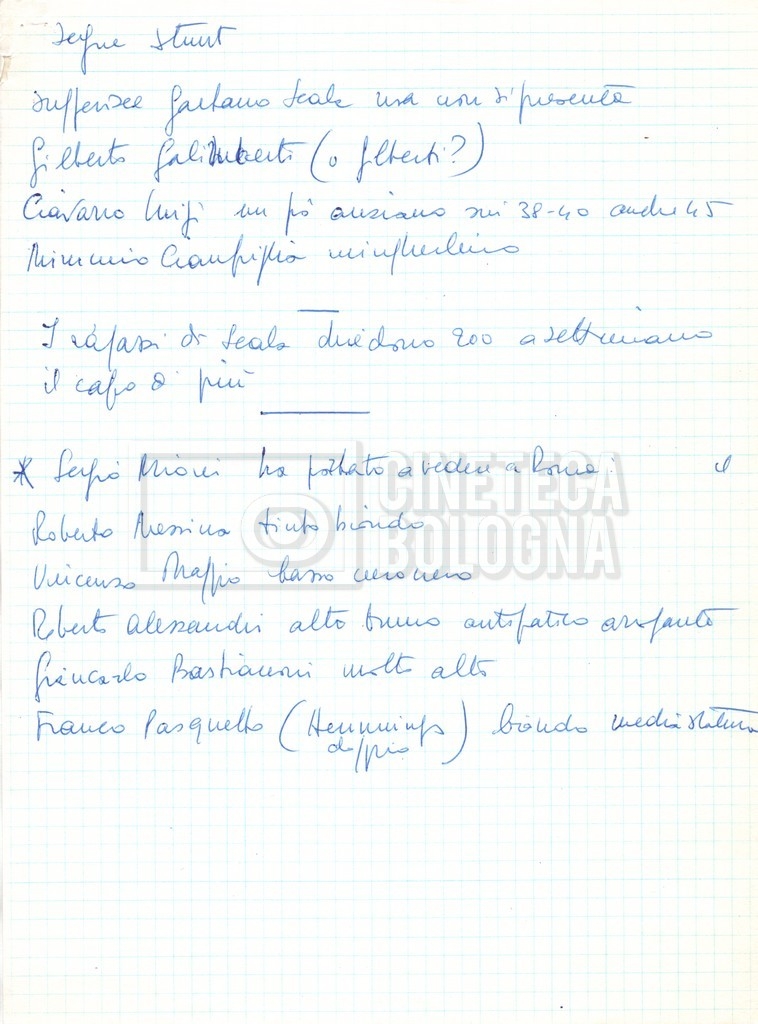 segue Stunt
suggerisce Gaetano Scala ma non si presenta
Gilberto Galimberti (o Gilberti?)
Ciavarro Luigi un pò anziano sui 38-40 anche 45
Mimmo Cianfriglia mingherlino
I ragazzi di Scala chiedono 200 a settimana
il capo di più
* Sergio Mioni ha portato a vedere a Roma: il
Roberto Messina tinto biondo
Vincenzo Maggio basso nero nero
Roberto Alessandri alto bruno antipatico arrogante
Giancarlo Bastianoni molto alto
Franco Pasquetto (Hemmings doppio) biondo media statura
CINETECA
BOLOGNA